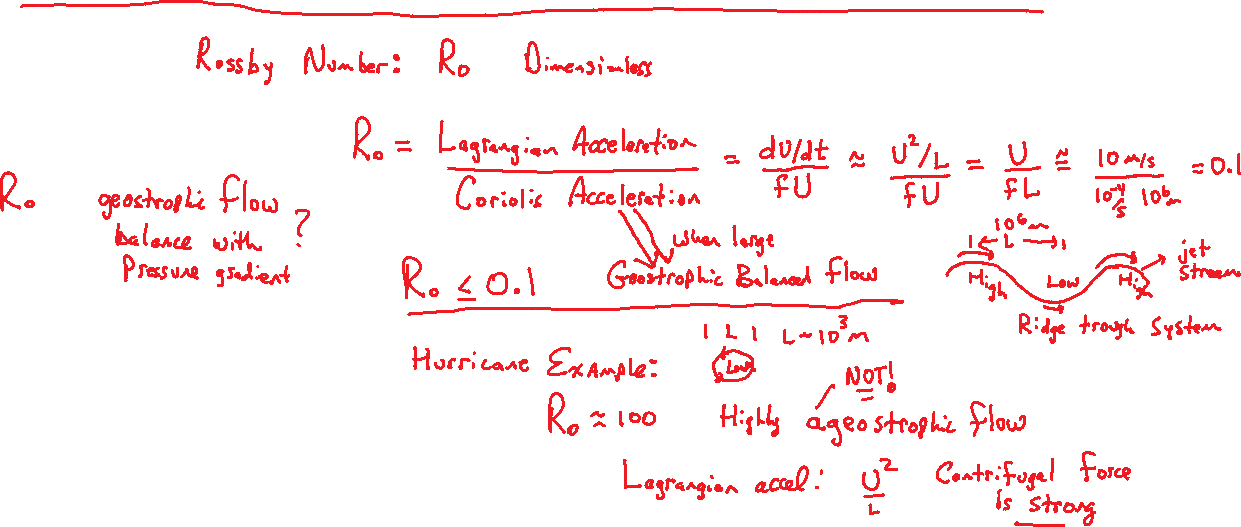 Rossby Number: Ro Dimensionless
Ro = Lagrangian Acceleration / Coriolis Acceleration = dU/dt / fU ≈ U²/L / fU = U / fL ≅ 10 m/s / 10⁻⁴/s 10⁶ m = 0.1
Ro geostrophic flow
balance with ?
Pressure gradient
when large
Geostrophic Balanced flow
Ro ≤ 0.1
10⁶ m
| ← L → |
High Low High
jet
stream
Ridge trough system
| L | L ~ 10³ m
Hurricane Example: Low
NOT!
Ro ≈ 100 Highly ageostrophic flow
Lagrangian accel: U²/L Centrifugal force
is strong